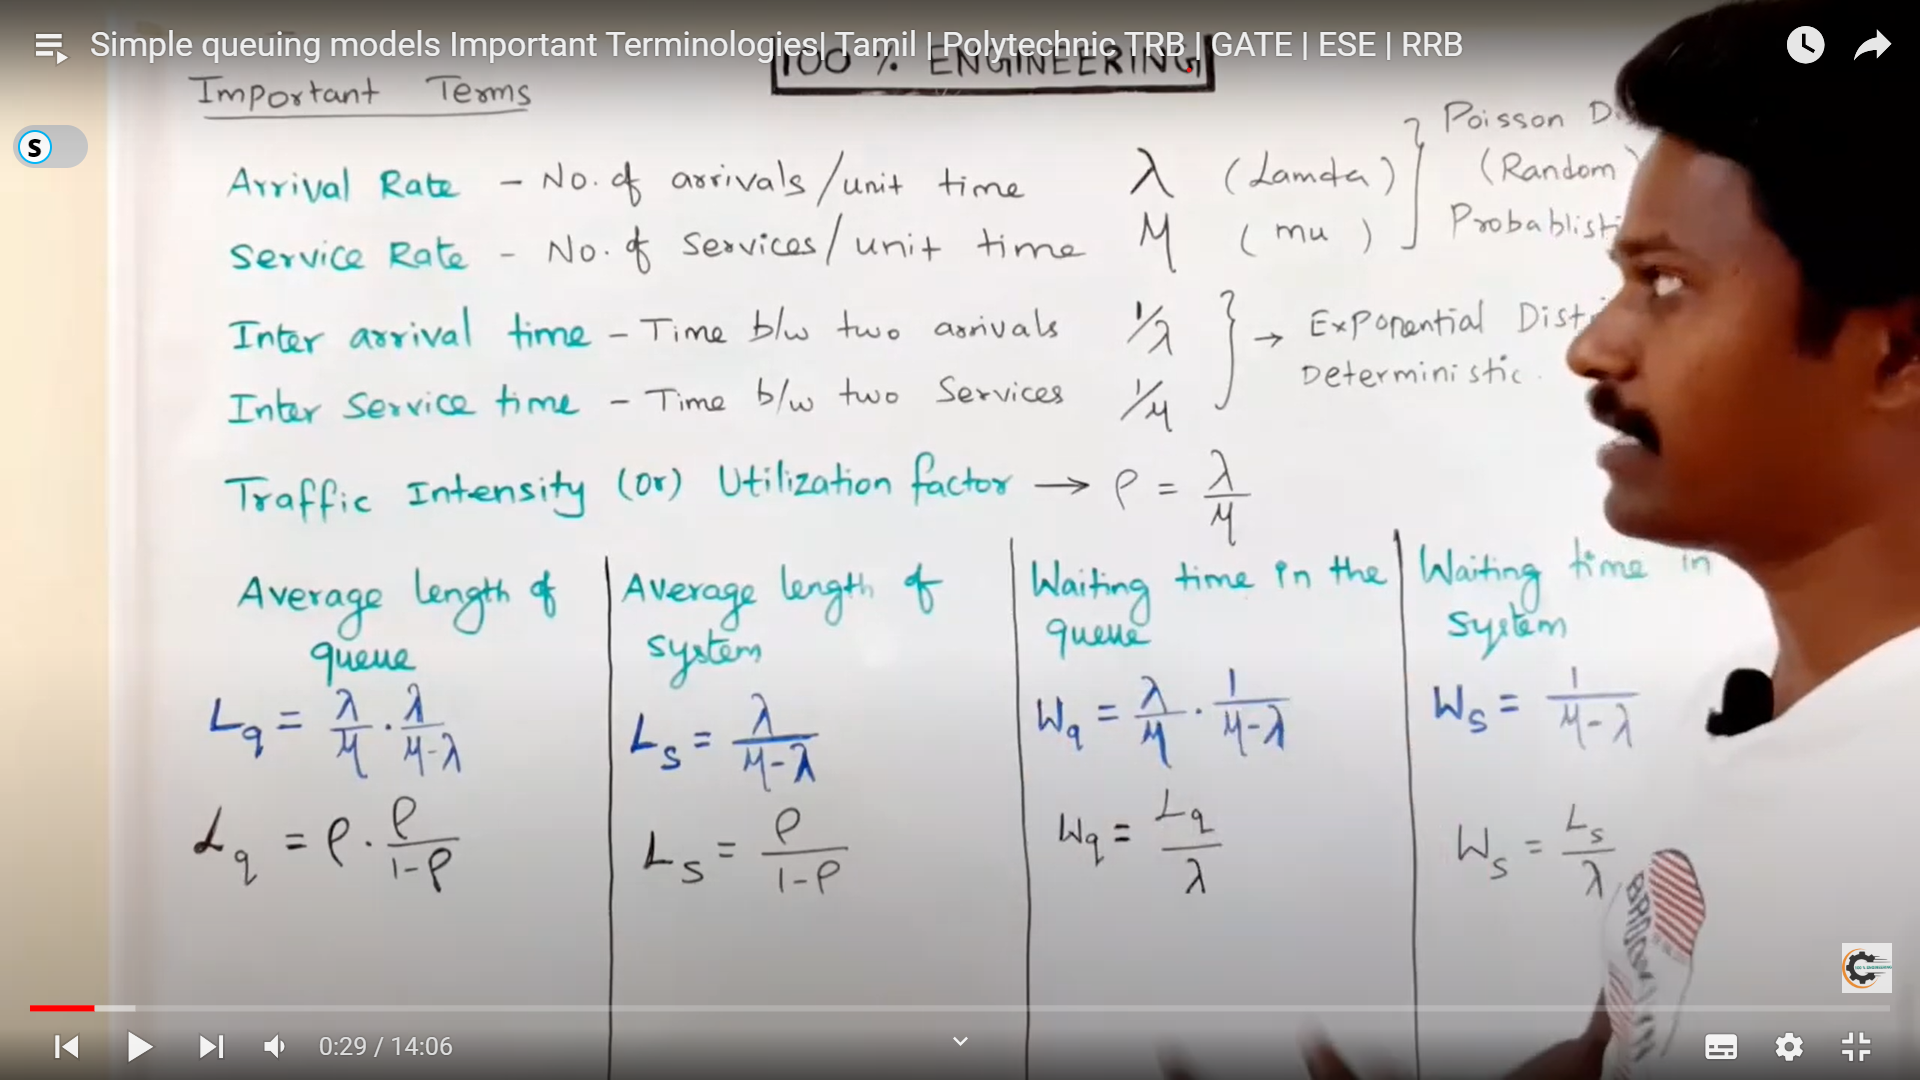 Simple queuing models Important Terminologies| Tamil | Polytechnic TRB | GATE | ESE | RRB
100 % ENGINEERING
Important Terms
S
Poisson
Arrival Rate - No. of arrivals/unit time λ (Lamda) (Random)
Service Rate - No. of Services/unit time μ (mu)
Inter arrival time - Time b/w two arrivals 1/λ } → Exponential
Inter Service time - Time b/w two Services 1/μ Deterministic.
Traffic Intensity (or) Utilization factor → ρ = λ/μ
Average length of queue
Lq = λ/μ · λ/μ-λ
Lq = ρ · ρ/1-ρ
Average length of system
Ls = λ/μ-λ
Ls = ρ/1-ρ
Waiting time in the queue
Wq = λ/μ · 1/μ-λ
Wq = Lq/λ
Waiting time in system
Ws = 1/μ-λ
Ws = Ls/λ
0:29 / 14:06